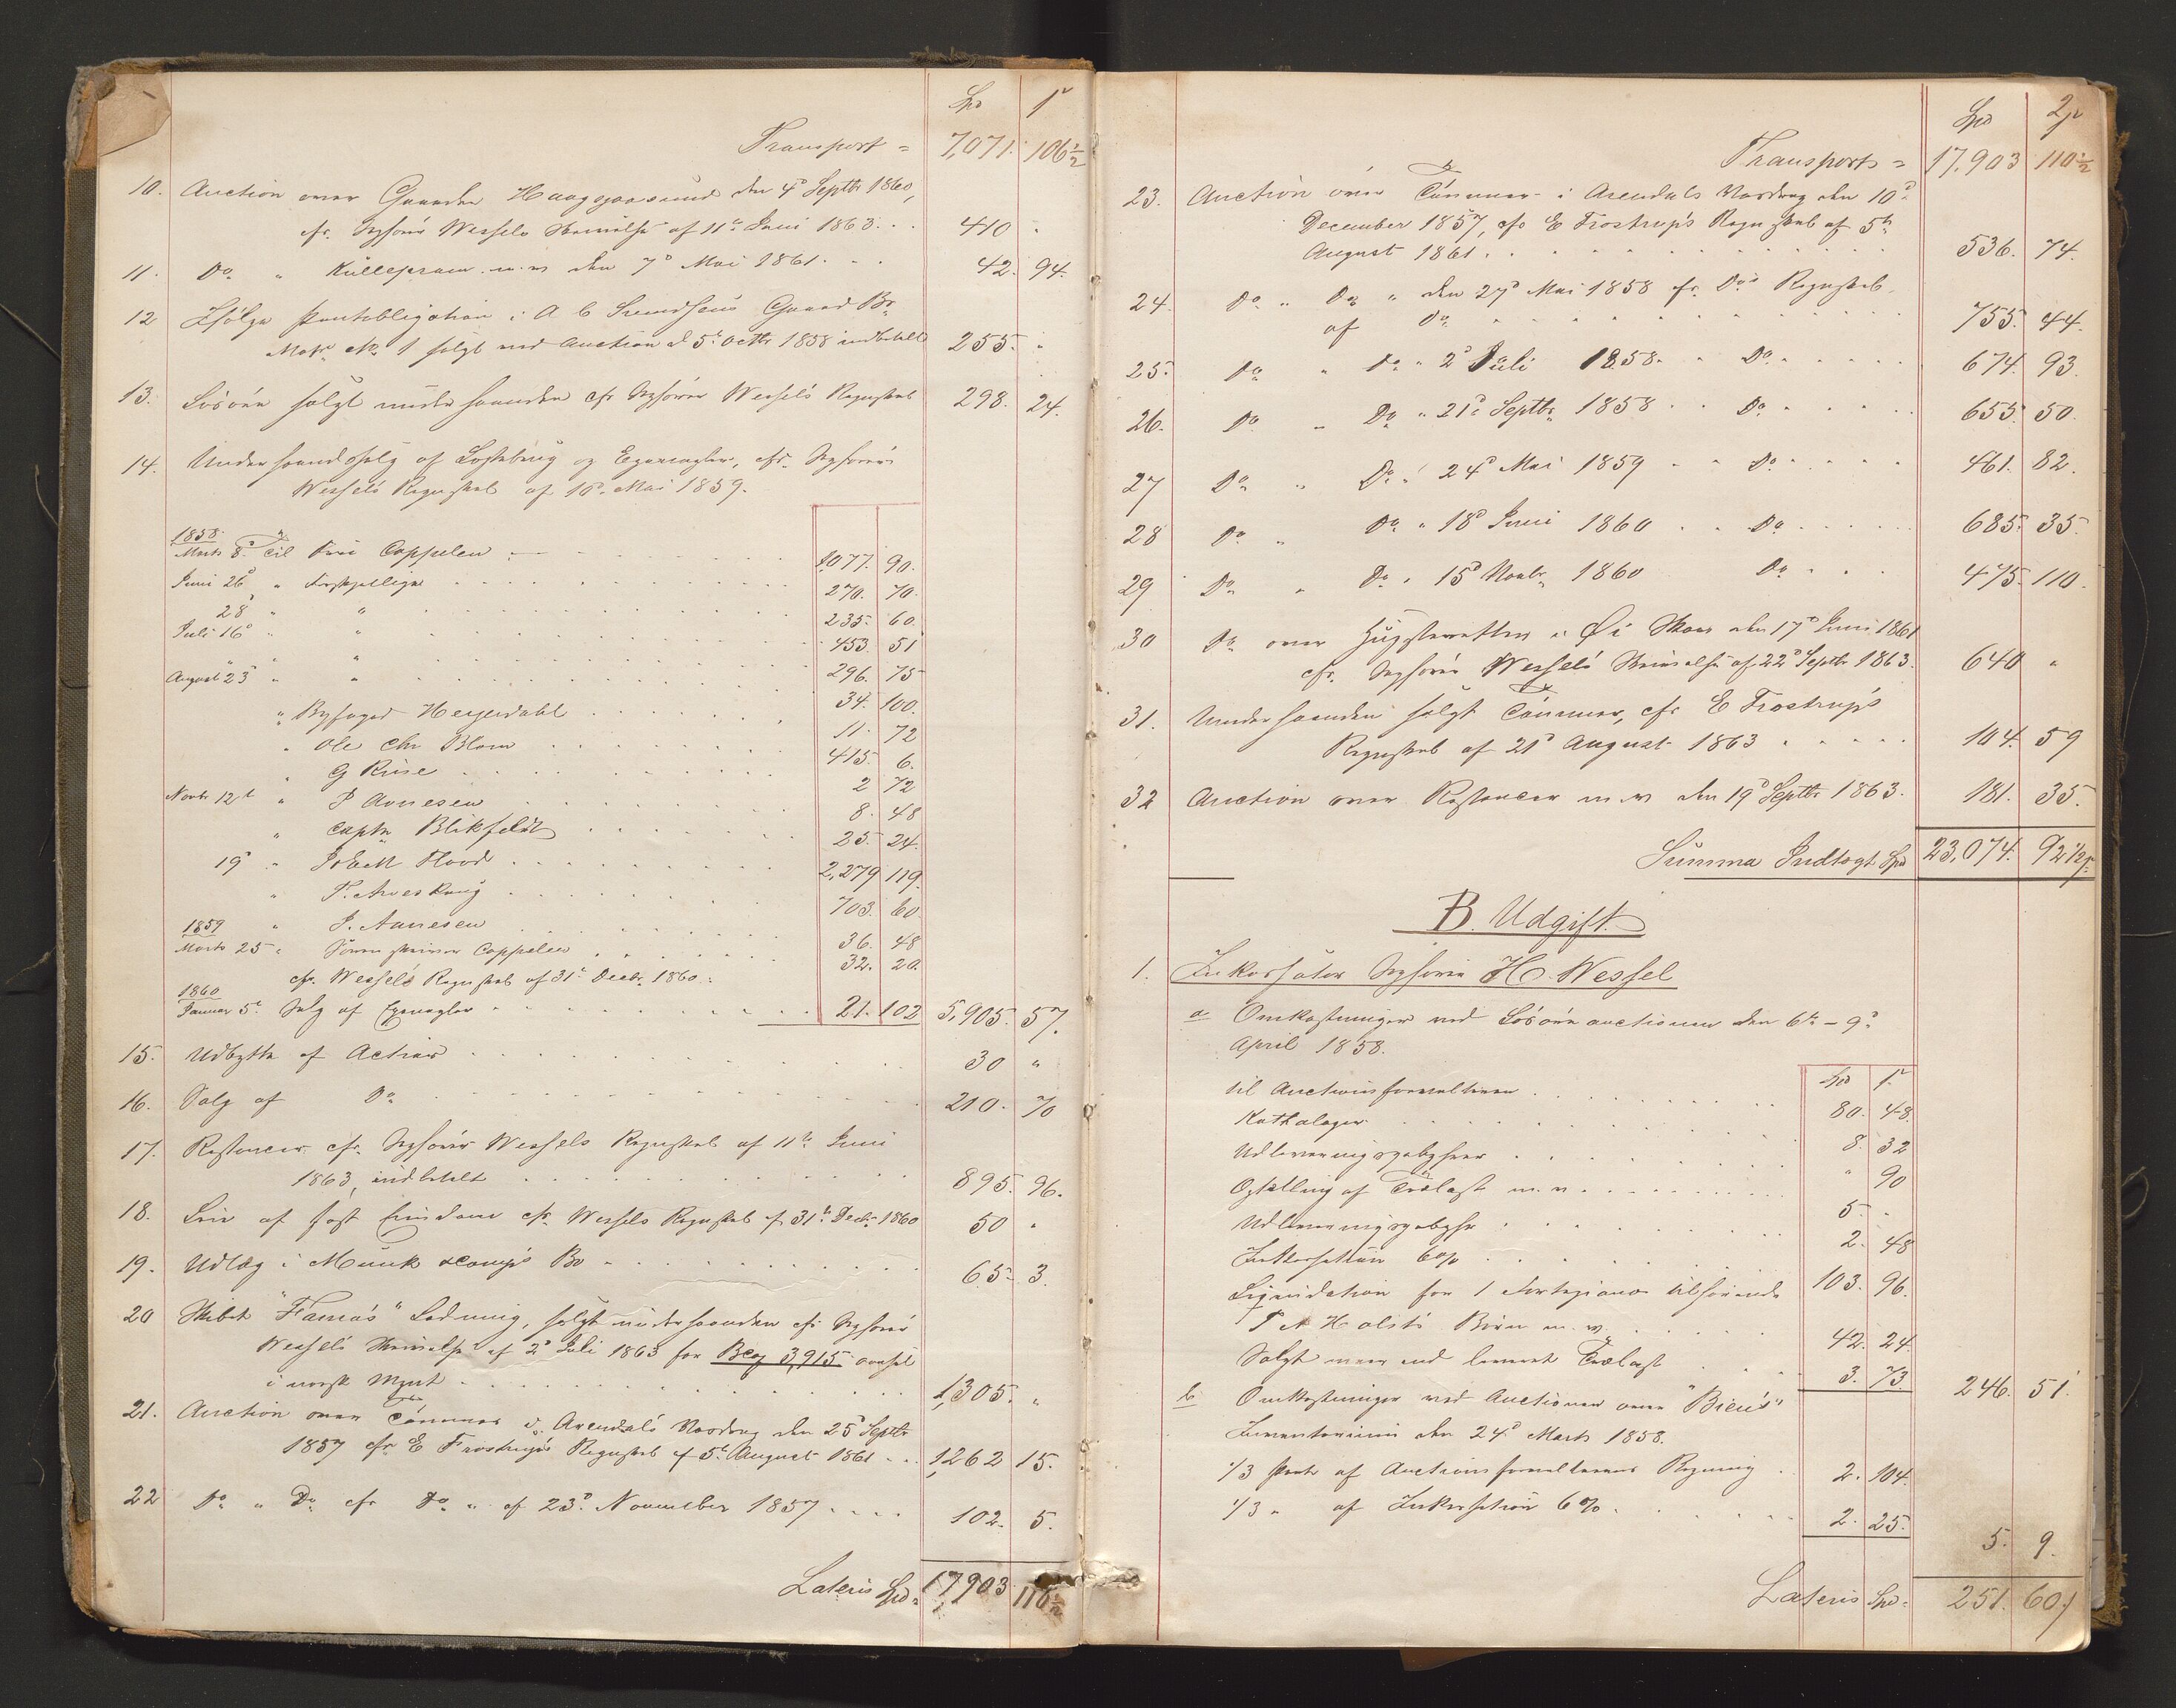 Spd ſ
Transport = 7,071. 106½
10. Auction over Gaarden Haagsjaasund den 4d Septbr 1860,
cfr. Sagförer Wessels Skrivelse af 11te Juni 1863. . . 410 "
11. Do " Kullepram m. v. den 7d Mai 1861. . . 42. 94.
12 Ifölge Pantobligation i A C Svendsens Gaard Bo
Matr. No. 1 solgt ved Auction d 5te Octbr 1858 indbetalt 255. "
13. Lösöre solgt underhaanden cfr Sagförer Wessels Regnskab 298. 24.
14. Underhaandssalg af og Egenagler, cfr. Sagförer
Wessels Regnskab af 18d Mai 1859.
1858.
Marts 8d Til Coppelen . . . 1,077. 90.
Juni 26d " Forskjellige . . . 270. 70.
28 " " . . . 235. 60.
Juli 16d " " . . . 453. 51
" " . . . 296. 75
August 23 " " . . . 34. 100.
" Byfoged Heyerdahl . . . 11. 72
" Ole Chr Blom . . . 415. 6.
" G Riise . . . 2 72
Novbr 12t " P Aanesen . . . 8. 48
" Captn Blikfeldt . . . 25. 24.
19d " Flood . . . 2,279 119.
" T. . . . 703. 60
1859 " P. Aanesen . . . 36. 48
Marts 25 " Sorenskriver Coppelen . . . 32. 20.
cfr. Wessels Regnskab af 31te Decbr. 1860.
1860
Januar 5t Salg af Egenagler . . . 21. 102 5,905. 57.
15. Udbytte af Actier . . . 30 "
16. Salg af Do . . . 210. 70
17. Restancer cfr. Sagförer Wessels Regnskab af 11te Juni
1863, indbetalt . . . 895. 96.
18. Leie af fast Eiendom cfr. Wessels Regnskab af 31te Decbr 1860 50 "
19. Udlæg i Munk & Comps Bo . . . 65. 3.
20 Skibet "Famas" Ladning, solgt underhaanden cfr Sagförer
Wessels Skrivelse af 2d Juli 1863 for Bco 3,915
i norsk Mynt . . . 1,305. "
21. Auction over Tömmer i Arendals Vasdrag den 25d Septbr
1857 cfr E Frostrups Regnskab af 5te August 1861 . . 1,262 15.
22 Do " Do cfr Do " af 23d November 1857 . . . 102. 5.
Lateris Spd = 17,903 110½
Spd ſ
Transport = 17,903 110½
23. Auction over Tömmer i Arendals Vasdrag den 10d
December 1857, cfr E Frostrups Regnskab af 5te
August 1861. . . 536. 74.
24. Do " Do " den 27d Mai 1858 cfr. Dos Regnskab
af Do . . . 755. 44.
25. Do " Do " 2d Juli 1858. " Do . . . 674. 93.
26. Do " Do " 21d Septbr 1858 . . Do . . . 655. 50.
27 Do " Do " 24d Mai 1859 . . Do . . . 461. 82.
28 Do " Do " 18d Juni 1860 . . Do . . . 685. 35.
29 Do " Do " 15d Novbr. 1860 Do . . . 475. 110.
30 Do over Hugsterretten i den 17d Juni 1861
cfr. Sagförer Wessels Skrivelse af 22d Septbr 1863. 640 "
31. Underhaanden solgt Tömmer, cfr E Frostrups
Regnskab af 21d August 1863 . . . 104. 59
32 Auction over Restancer m. v. den 19d Septbr 1863. 181. 35.
Summa Indtægt Spd 23,074. 92½
B. Udgift.
1. Inkassator Sagförer H. Wessel
a Omkostninger ved Lösöreauctionen den 6te - 9d
April 1858.
Spd ſ
til Auctionsforvalteren . . . 80. 48.
Kathaloger . . . 8. 32
Udleveringsgebyhrer . . . " 90
Optælling af Trælast m. v. . . . 5. "
Udleveringsgebyhr . . . 2. 48
Inkassation 6% . . . 103. 96.
Liqvidation for 1 Fortepiano tilhörende
P N Holsts Börn m. v. . . . 42. 24.
Solgt mere end leveret Trælast . . . 3. 73. 246. 51.
b Omkostninger ved Auctionen over "Biens"
Inventarium den 24d Marts 1858.
1/3 Part af Auctionsforvalterens Regning . . 2. 104.
1/3 " af Inkassation 6% . . . 2. 25. 5. 9.
Lateris Spd = 251. 60